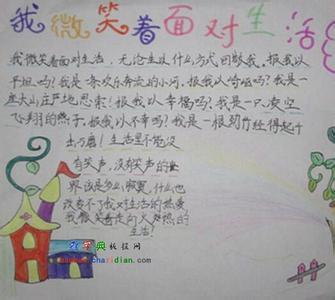 我微笑着面对生活
我微笑着面对生活,无论生活以什么方式回敬我。报我以
平坦吗?我是一条欢乐奔流的小河。报我以崎岖吗?我是一
座大山庄严地思索!报我以幸福吗?我是一只凌空
飞翔的燕子。报我以不幸吗?我是一根劲竹经得起千
击万磨!生活里不能没
有笑声,没有笑声的世
界该是多么寂寞,什么也
改变不了我对生活的热爱
我微笑着走向火热的
生活!
查字典板报网
chazidian.com